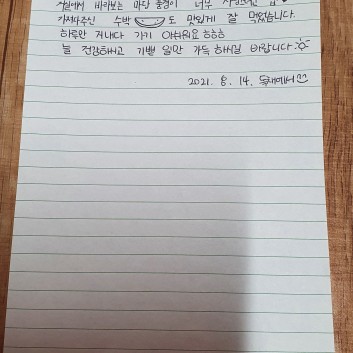 거실에서 바라보는 마당 풍경이 너무
가져다주신 수박도 맛있게 잘 먹었습니다.
하루만 지내다 가기 아쉬워요 ㅎㅎㅎ
늘 건강하시고 기쁜 일만 가득 하시길 바랍니다.
2021. 8. 14.